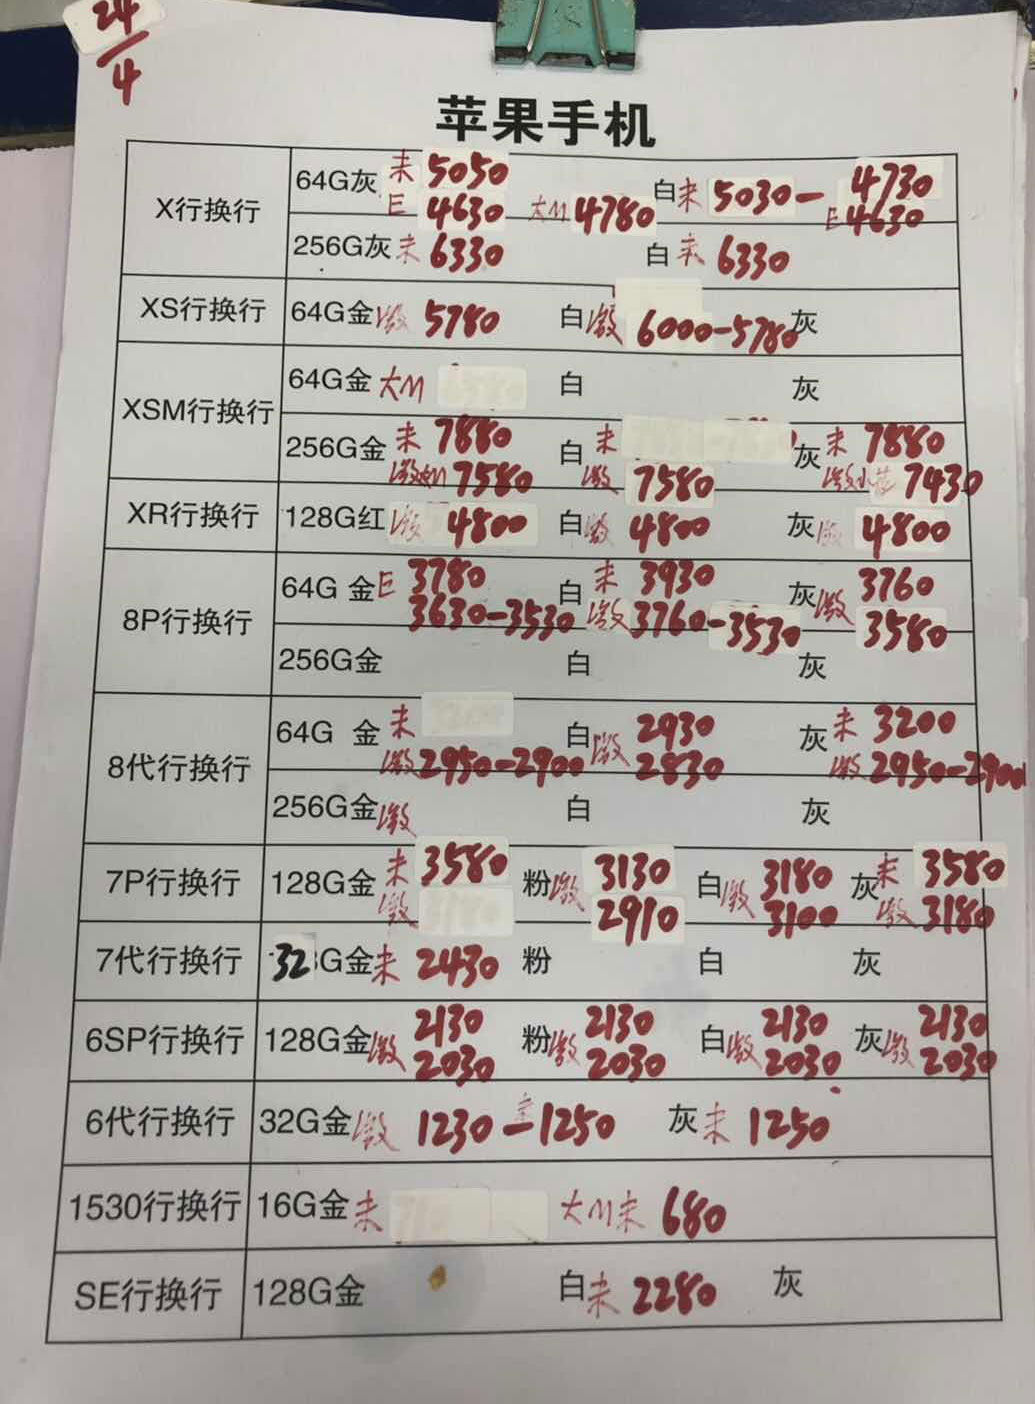 24/4
苹果手机
X行换行 64G灰 未 5050 白 未 5030-4730
E 4630 大M 4780 E 4630
256G灰 未 6330 白 未 6330
XS行换行 64G金 激 5780 白 激 6000-5780 灰
XSM行换行 64G金 大M 白 灰
256G金 未 7880 白 未 灰 未 7880
激 7580 激 7580 激小 7430
XR行换行 128G红 激 4800 白 激 4800 灰 激 4800
8P行换行 64G 金 E 3780 白 未 3930 灰 激 3760
3630-3530 激 3760-3530 3580
256G金 白 灰
8代行换行 64G 金 未 白 激 2930 灰 未 3200
激 2950-2900 2830 激 2950-2900
256G金 激 白 灰
7P行换行 128G金 未 3580 粉 激 3130 白 激 3180 灰 未 3580
激 2910 3100 激 3180
7代行换行 32G金 未 2430 粉 白 灰
6SP行换行 128G金 激 2130 粉 激 2130 白 激 2130 灰 激 2130
2030 2030 2030 2030
6代行换行 32G金 激 1230-未 1250 灰 未 1250
1530行换行 16G金 未 大M未 680
SE行换行 128G金 白 未 2280 灰